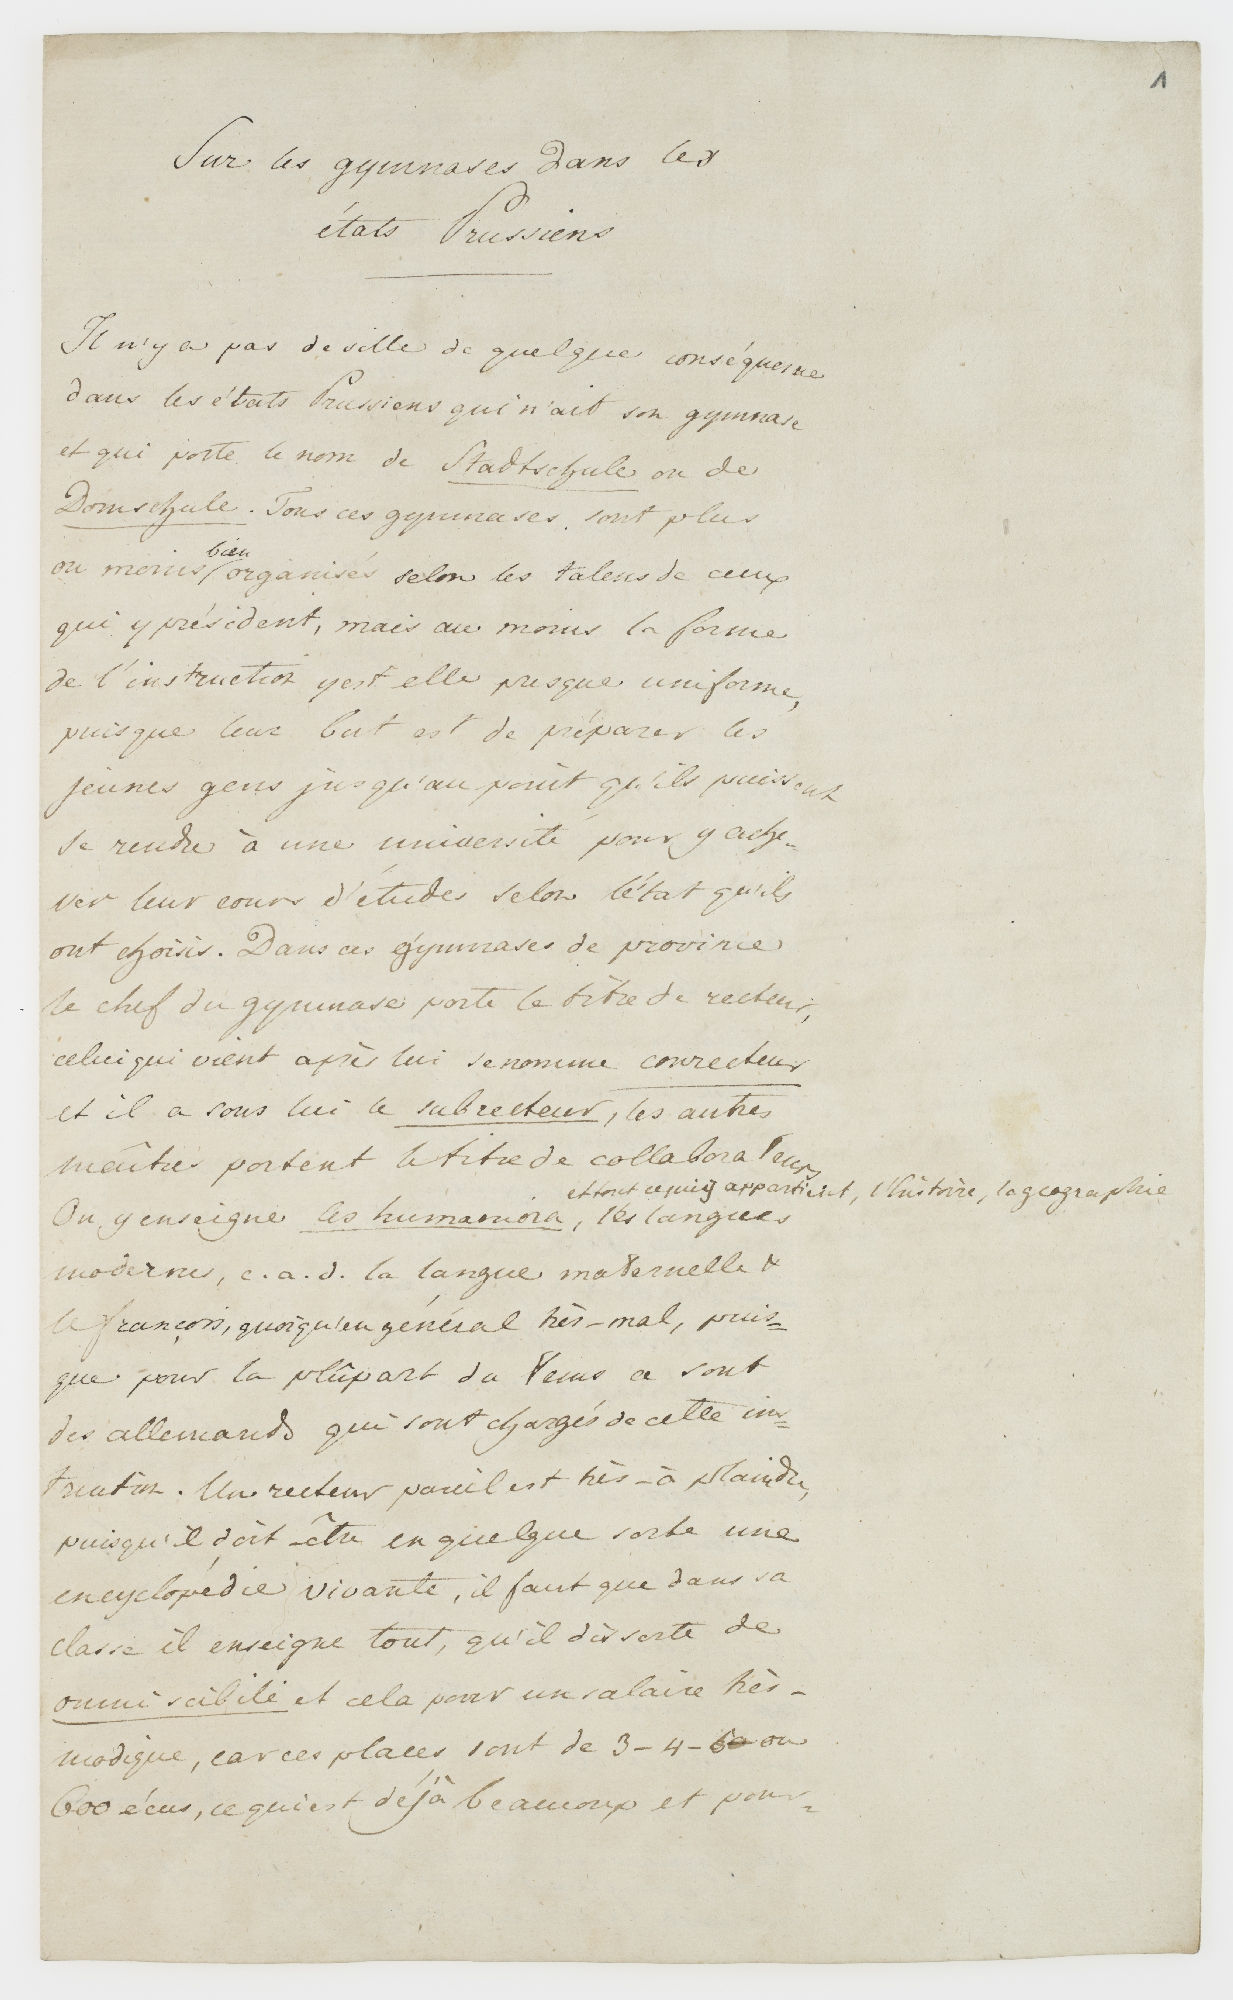 1
Sur les gymnases dans les
états Prussiens
Il n'y a pas de ville de quelque conséquence
dans les états Prussiens qui n'ait son gymnase
et qui porte le nom de Stadtschule ou de
Domschule. Tous ces gymnases sont plus
bien
ou moins organisés selon les talens de ceux
qui y président, mais au moins la forme
de l'instruction y est-elle presque uniforme,
puisque leur but est de préparer les
jeunes gens jusqu'au point qu'ils puissent
se rendre à une université pour y ache-
ver leur cours d'études selon l'état qu'ils
ont choisis. Dans ces gymnases de province
le chef du gymnase porte le titre de recteur,
celui qui vient après lui se nomme conrecteur
et il a sous lui le subrecteur, les autres
maîtres portent le titre de collaborateurs
et tout ce qui y appartient, l'histoire, la géographie
On y enseigne les humaniora, les langues
modernes, c.a.d. la langue maternelle &
le françois, quoiqu'en général très-mal, puis=
que pour la plûpart du tems ce sont
des allemands qui sont chargés de cette ins=
truction. Un recteur pareil est très-à plaindre,
puisqu'il doit-être en quelque sorte une
encyclopédie vivante, il faut que dans sa
classe il enseigne tout, qu'il disserte de
omni scibili et cela pour un salaire très-
modique, car ces places sont de 3-4- ou
600 écus, ce qui est déjà beaucoup et pour=